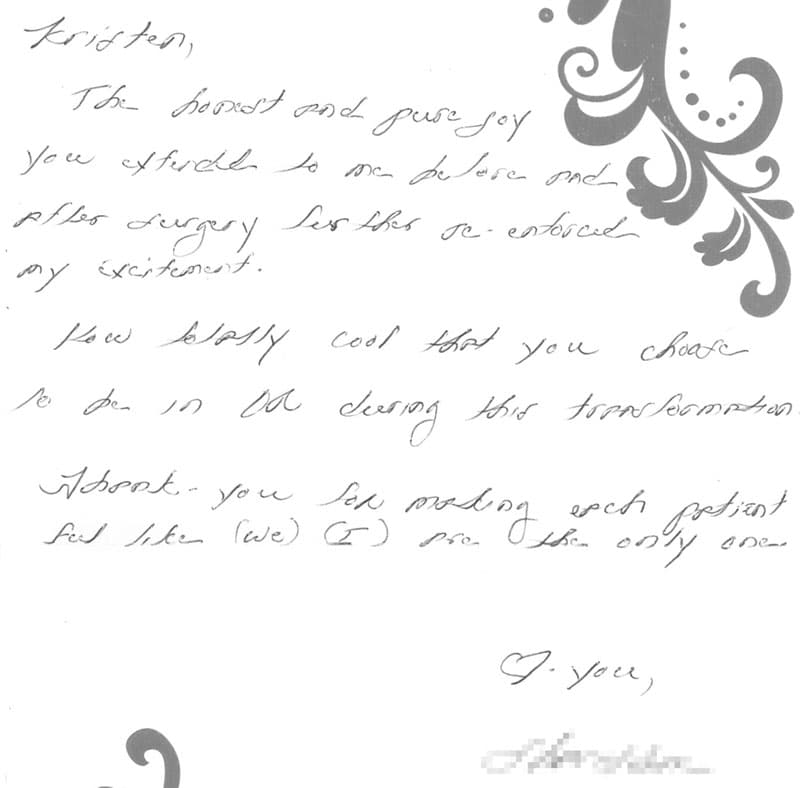 Kristen,
The honest and pure joy
you extended to me before and
after surgery further re-enforced
my excitement.
How totally cool that you choose
to be in OR during this transformation.
Thank-you for making each patient
feel like (we) (I) are the only one.
♡- you,